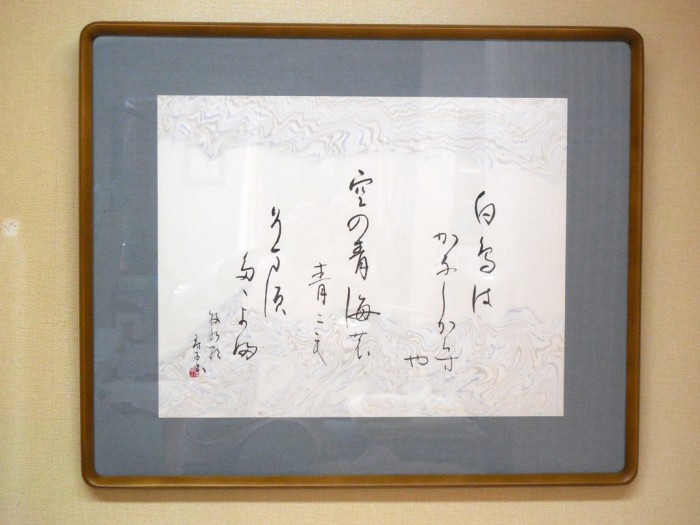 白鳥は
かなしからず
や
空の青海の
青にも
そまず
たゞよふ
牧水歌